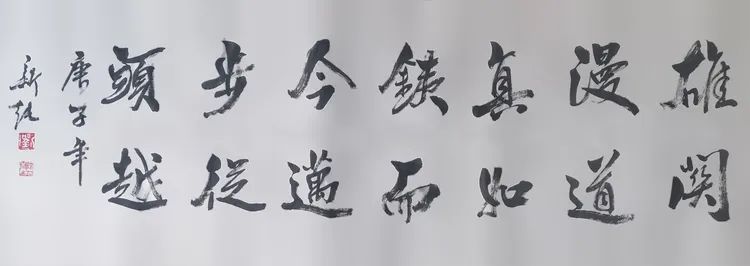 雄関
漫道
真如
鉄而
今邁
步從
頭越
庚子年
新